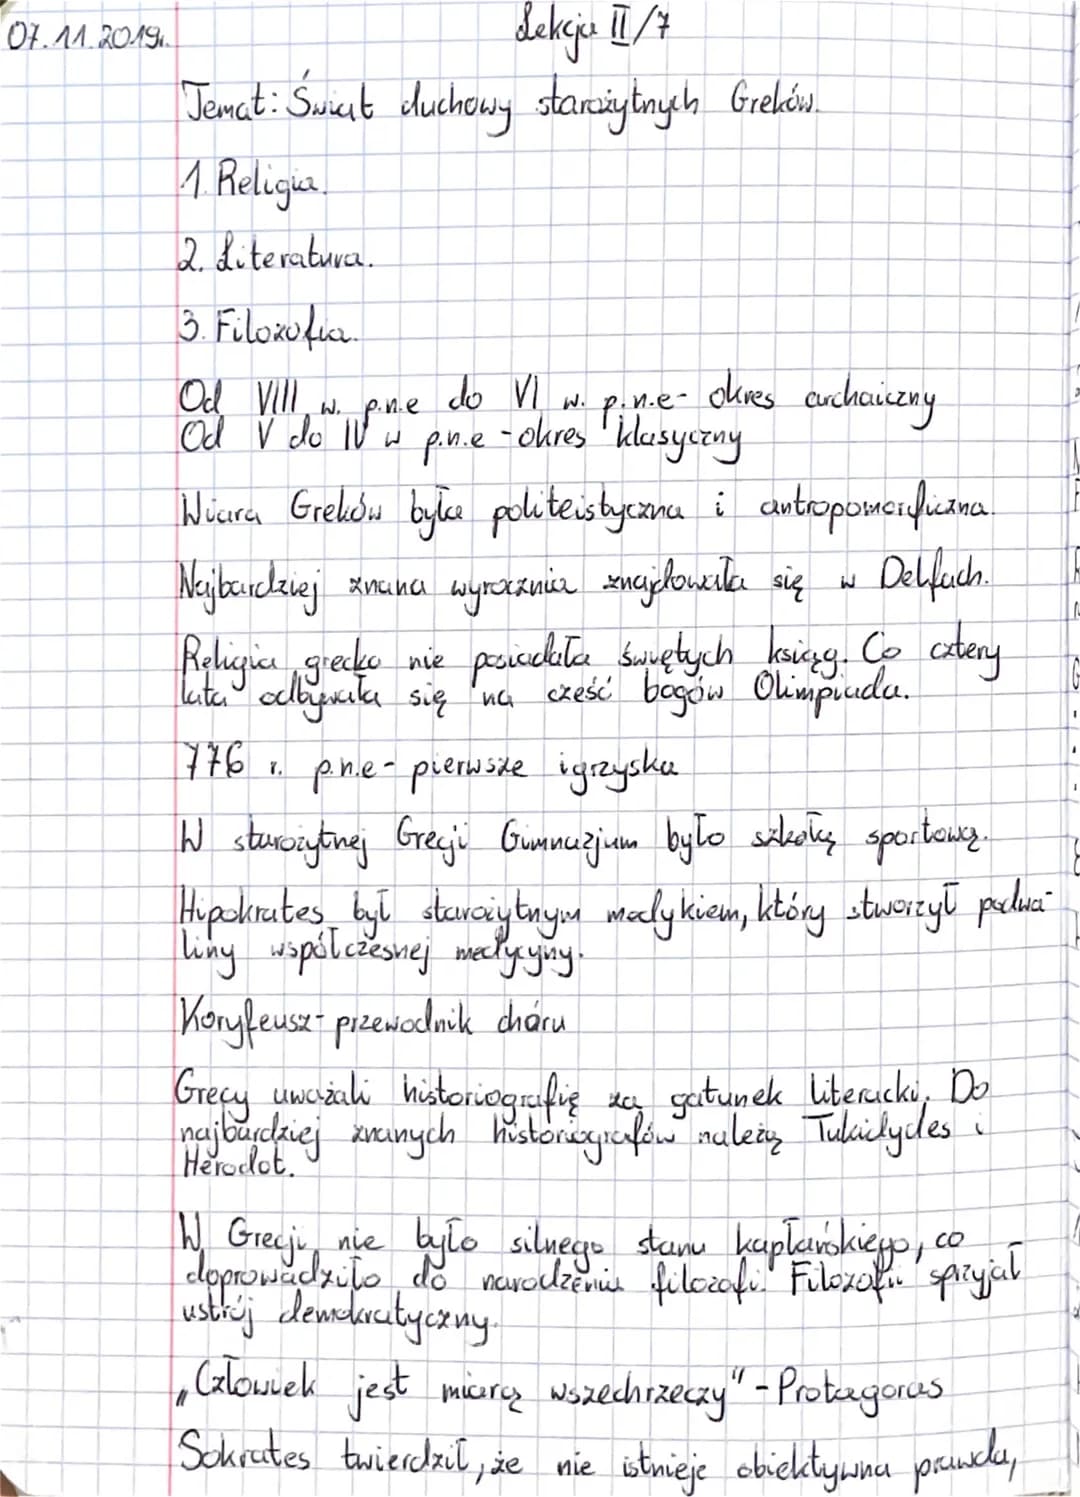 07.11.2019r.
Lekcja II/7
Temat: Świat duchowy starożytnych Greków.
1. Religia.
2. Literatura.
3. Filozofia.
Od VIII w. p.n.e do VI w. p.n.e - okres archaiczny
Od V do IV w p.n.e - okres klasyczny
Wiara Greków była politeistyczna i antropomorficzna.
Najbardziej znana wyrocznia znajdowała się w Delfach.
Religia grecka nie posiadała świętych ksiąg. Co cztery
lata odbywała się na cześć bogów Olimpiada.
776 r. p.n.e - pierwsze igrzyska
W starożytnej Grecji Gimnazjum było szkołą sportową.
Hipokrates był starożytnym medykiem, który stworzył podwa-
liny współczesnej medycyny.
Koryfeusz - przewodnik chóru
Grecy uważali historiografię za gatunek literacki. Do
najbardziej znanych historiografów należą Tukidydes i
Herodot.
W Grecji nie było silnego stanu kapłańskiego, co
doprowadziło do narodzenia filozofi. Filozofii sprzyjał
ustrój demokratyczny.
„Człowiek jest miarą wszechrzeczy" - Protagoras
Sokrates twierdził, że nie istnieje obiektywna prawda,